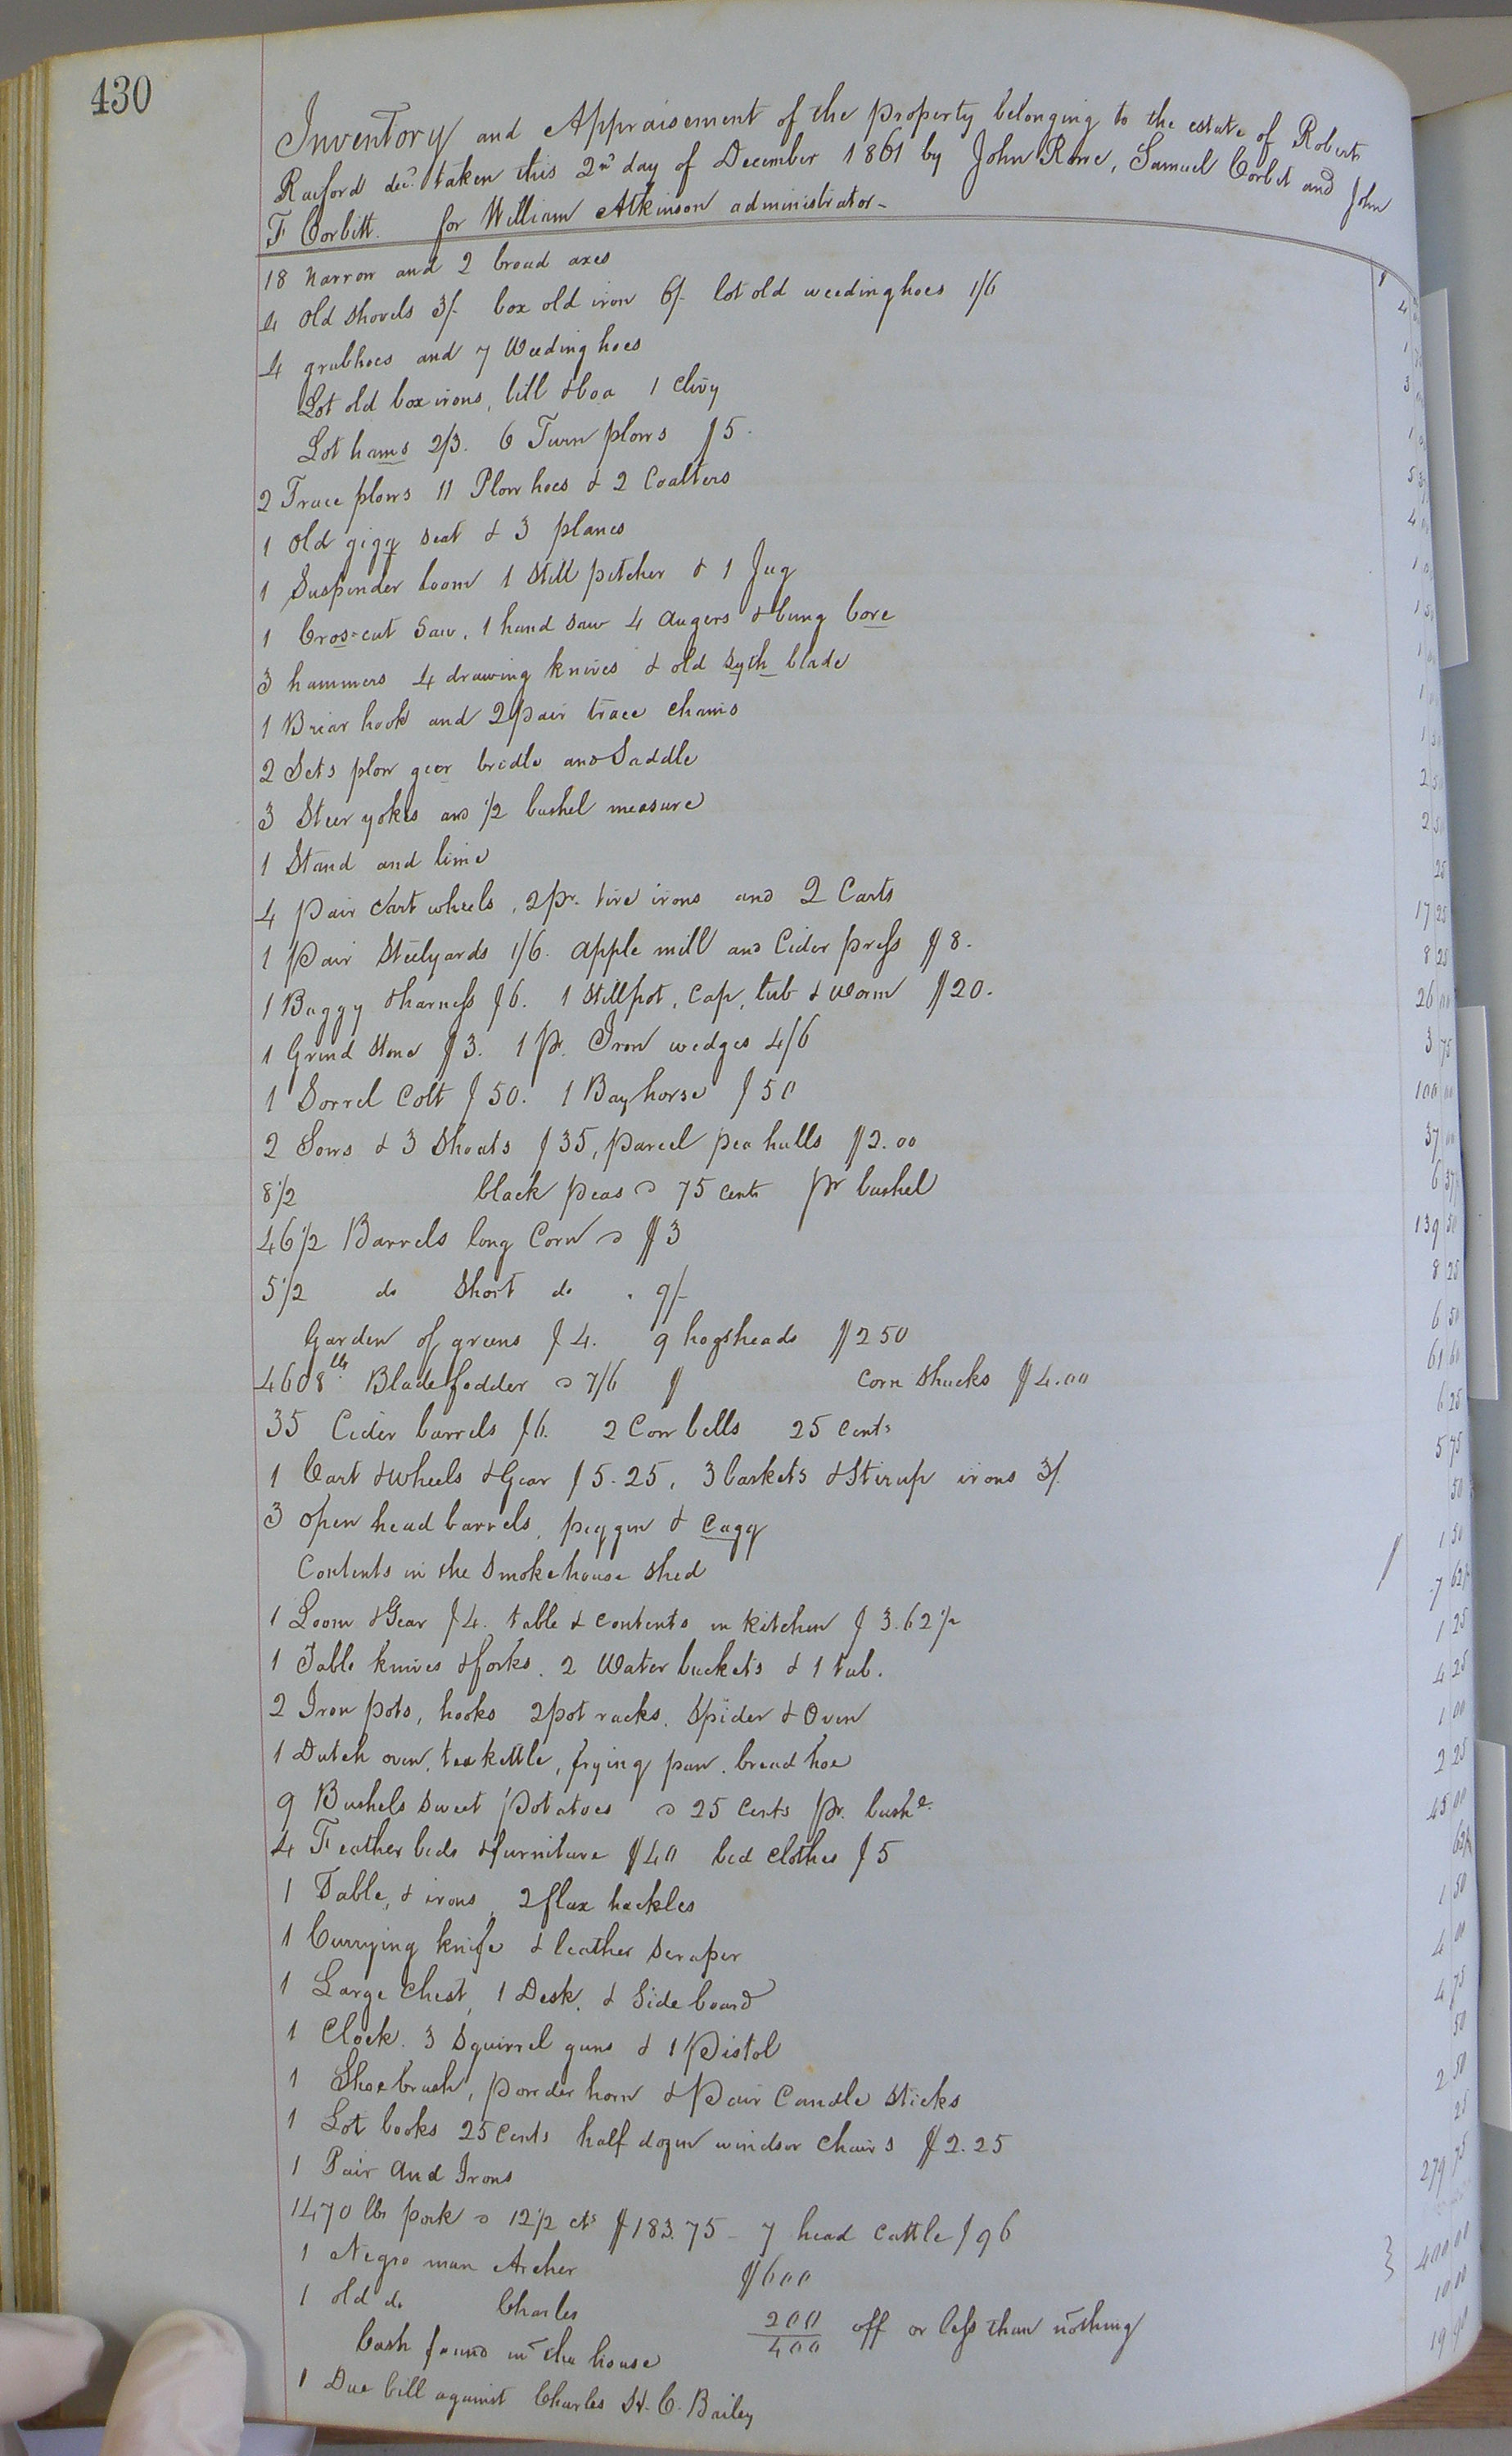 430
Inventory and Appraisement of the property belonging to the estate of Robert
Raiford decd. taken this 2nd day of December 1861 by John Rowe, Samuel Corbit and John
F Corbitt. for William Atkinson administrator -
18 narrow and 2 broad axes $ 4
4 old shovels 3/. box old iron 6/. lot old weedinghoes 1/6 1
4 grubhoes and 7 Weeding hoes 3
Lot old box irons, bill & boa 1 clivy 1
Lot hams 2/3. 6 Turn plows $5. 5
2 Trace plows 11 Plow hoes & 2 Coalters 4
1 old gigg seat & 3 planes 1
1 Suspender loom 1 Still pitcher & 1 Jug 1 50
1 Cros=cut Saw, 1 hand saw 4 augers & bung bore 1
3 hammers 4 drawing knives & old syth blade 1
1 Briar hook and 2 pair trace chains 1 50
2 Sets plow geer bridle and Saddle 2 50
3 Steer yokes and 1/2 bushel measure 2 50
1 Stand and lime 25
4 pair cart wheels, 2 pr. tire irons and 2 Carts 17 25
1 pair Steelyards 1/6. apple mill and Cider press $8. 8 25
1 Buggy & harness $6. 1 Stillpot, Cap, tub & worm $20. 26 00
1 Grind Stone $3. 1 pr. Iron wedges 4/6 3 75
1 Sorrel Colt $50. 1 Bay horse $50 100 00
2 Sows & 3 Shoats $35, parcel pea hulls $2.00 37 00
8 1/2 black peas @ 75 cents pr bushel 6 37 1/2
46 1/2 Barrels long Corn @ $3 139 50
5 1/2 do Short do . 9/- 8 25
Garden of greens $4. 9 hogsheads $2 50 6 50
4608 lbs. Blade fodder @ 7/6 $ Corn Shucks $4.00 61 60
35 Cider barrels $6. 2 Cow bells 25 cents 6 25
1 Cart & wheels & Gear $5.25, 3 baskets & Stirup irons 3/. 5 75
3 open head barrels, piggin & cagg 50
Contents in the Smokehouse shed 1 50
1 Loom & Gear $4. table & contents in kitchen $3.62 1/2 7 62 1/2
1 Table knives & forks. 2 Water buckets & 1 tub. 1 25
2 Iron pots, hooks 2 pot racks, Spider & Oven 4 25
1 Dutch oven, tea kettle, frying pan, bread hoe 1 00
9 Bushels Sweet Potatoes @ 25 Cents pr. bushl. 2 25
4 Feather beds & furniture $40 bed clothes $5 45 00
1 Table, & irons, 2 flax hackles 62 1/2
1 Currying knife & leather scraper 1 50
1 Large Chest, 1 Desk, & Side board 4 00
1 Clock. 3 Squirrel guns & 1 Pistol 4 75
1 Shoe brush, powder horn & Pair Candle Sticks 50
1 Lot books 25 Cents half dozen windsor chairs $2.25 2 50
1 Pair And Irons 25
1470 lbs pork @ 12 1/2 cts $183.75 - 7 head cattle $96 279 75
1 Negro man Archer $600
1 old do Charles 200 off or less than nothing 400 00
Cash found in the house 400 10 00
1 Due bill against Charles H. C. Bailey 19